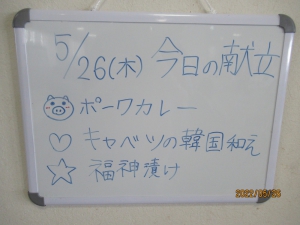 5/26(木) 今日の献立
ポークカレー
キャベツの韓国和え
福神漬け
2022/05/26